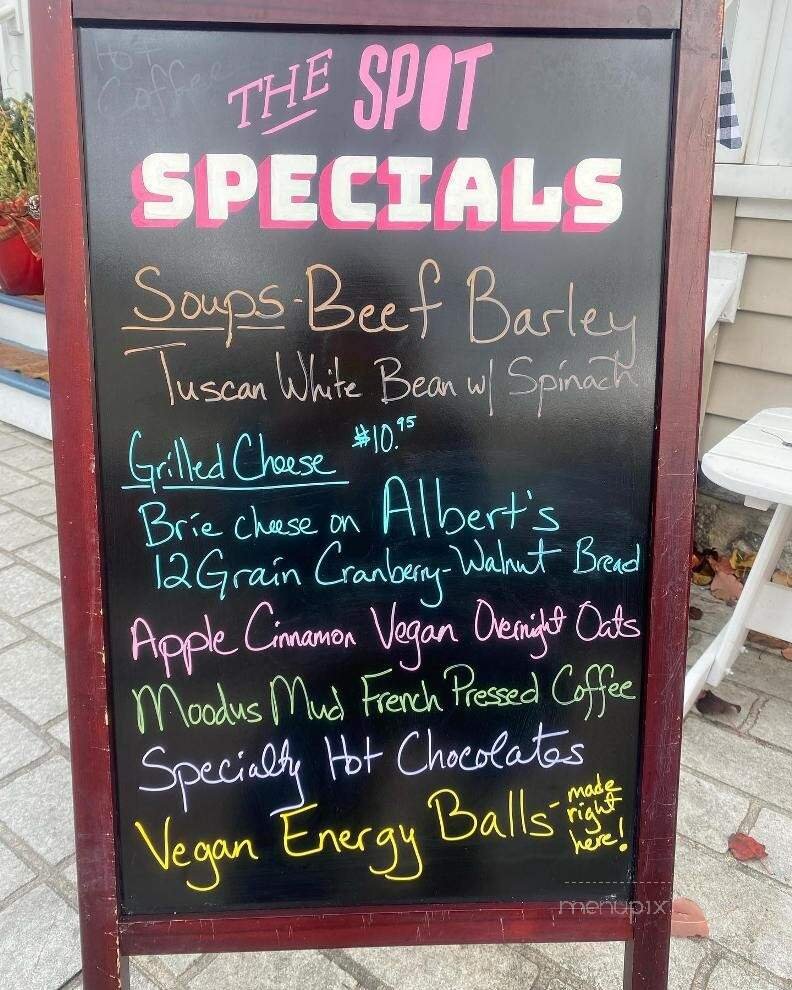 Hot
Coffee
THE SPOT
SPECIALS
Soups-Beef Barley
Tuscan White Bean w/ Spinach
Grilled Cheese $10.95
Brie cheese on Albert's
12 Grain Cranberry-Walnut Bread
Apple Cinnamon Vegan Overnight Oats
Moodus Mud French Pressed Coffee
Specialty Hot Chocolates
Vegan Energy Balls- made
right
here!
menupix